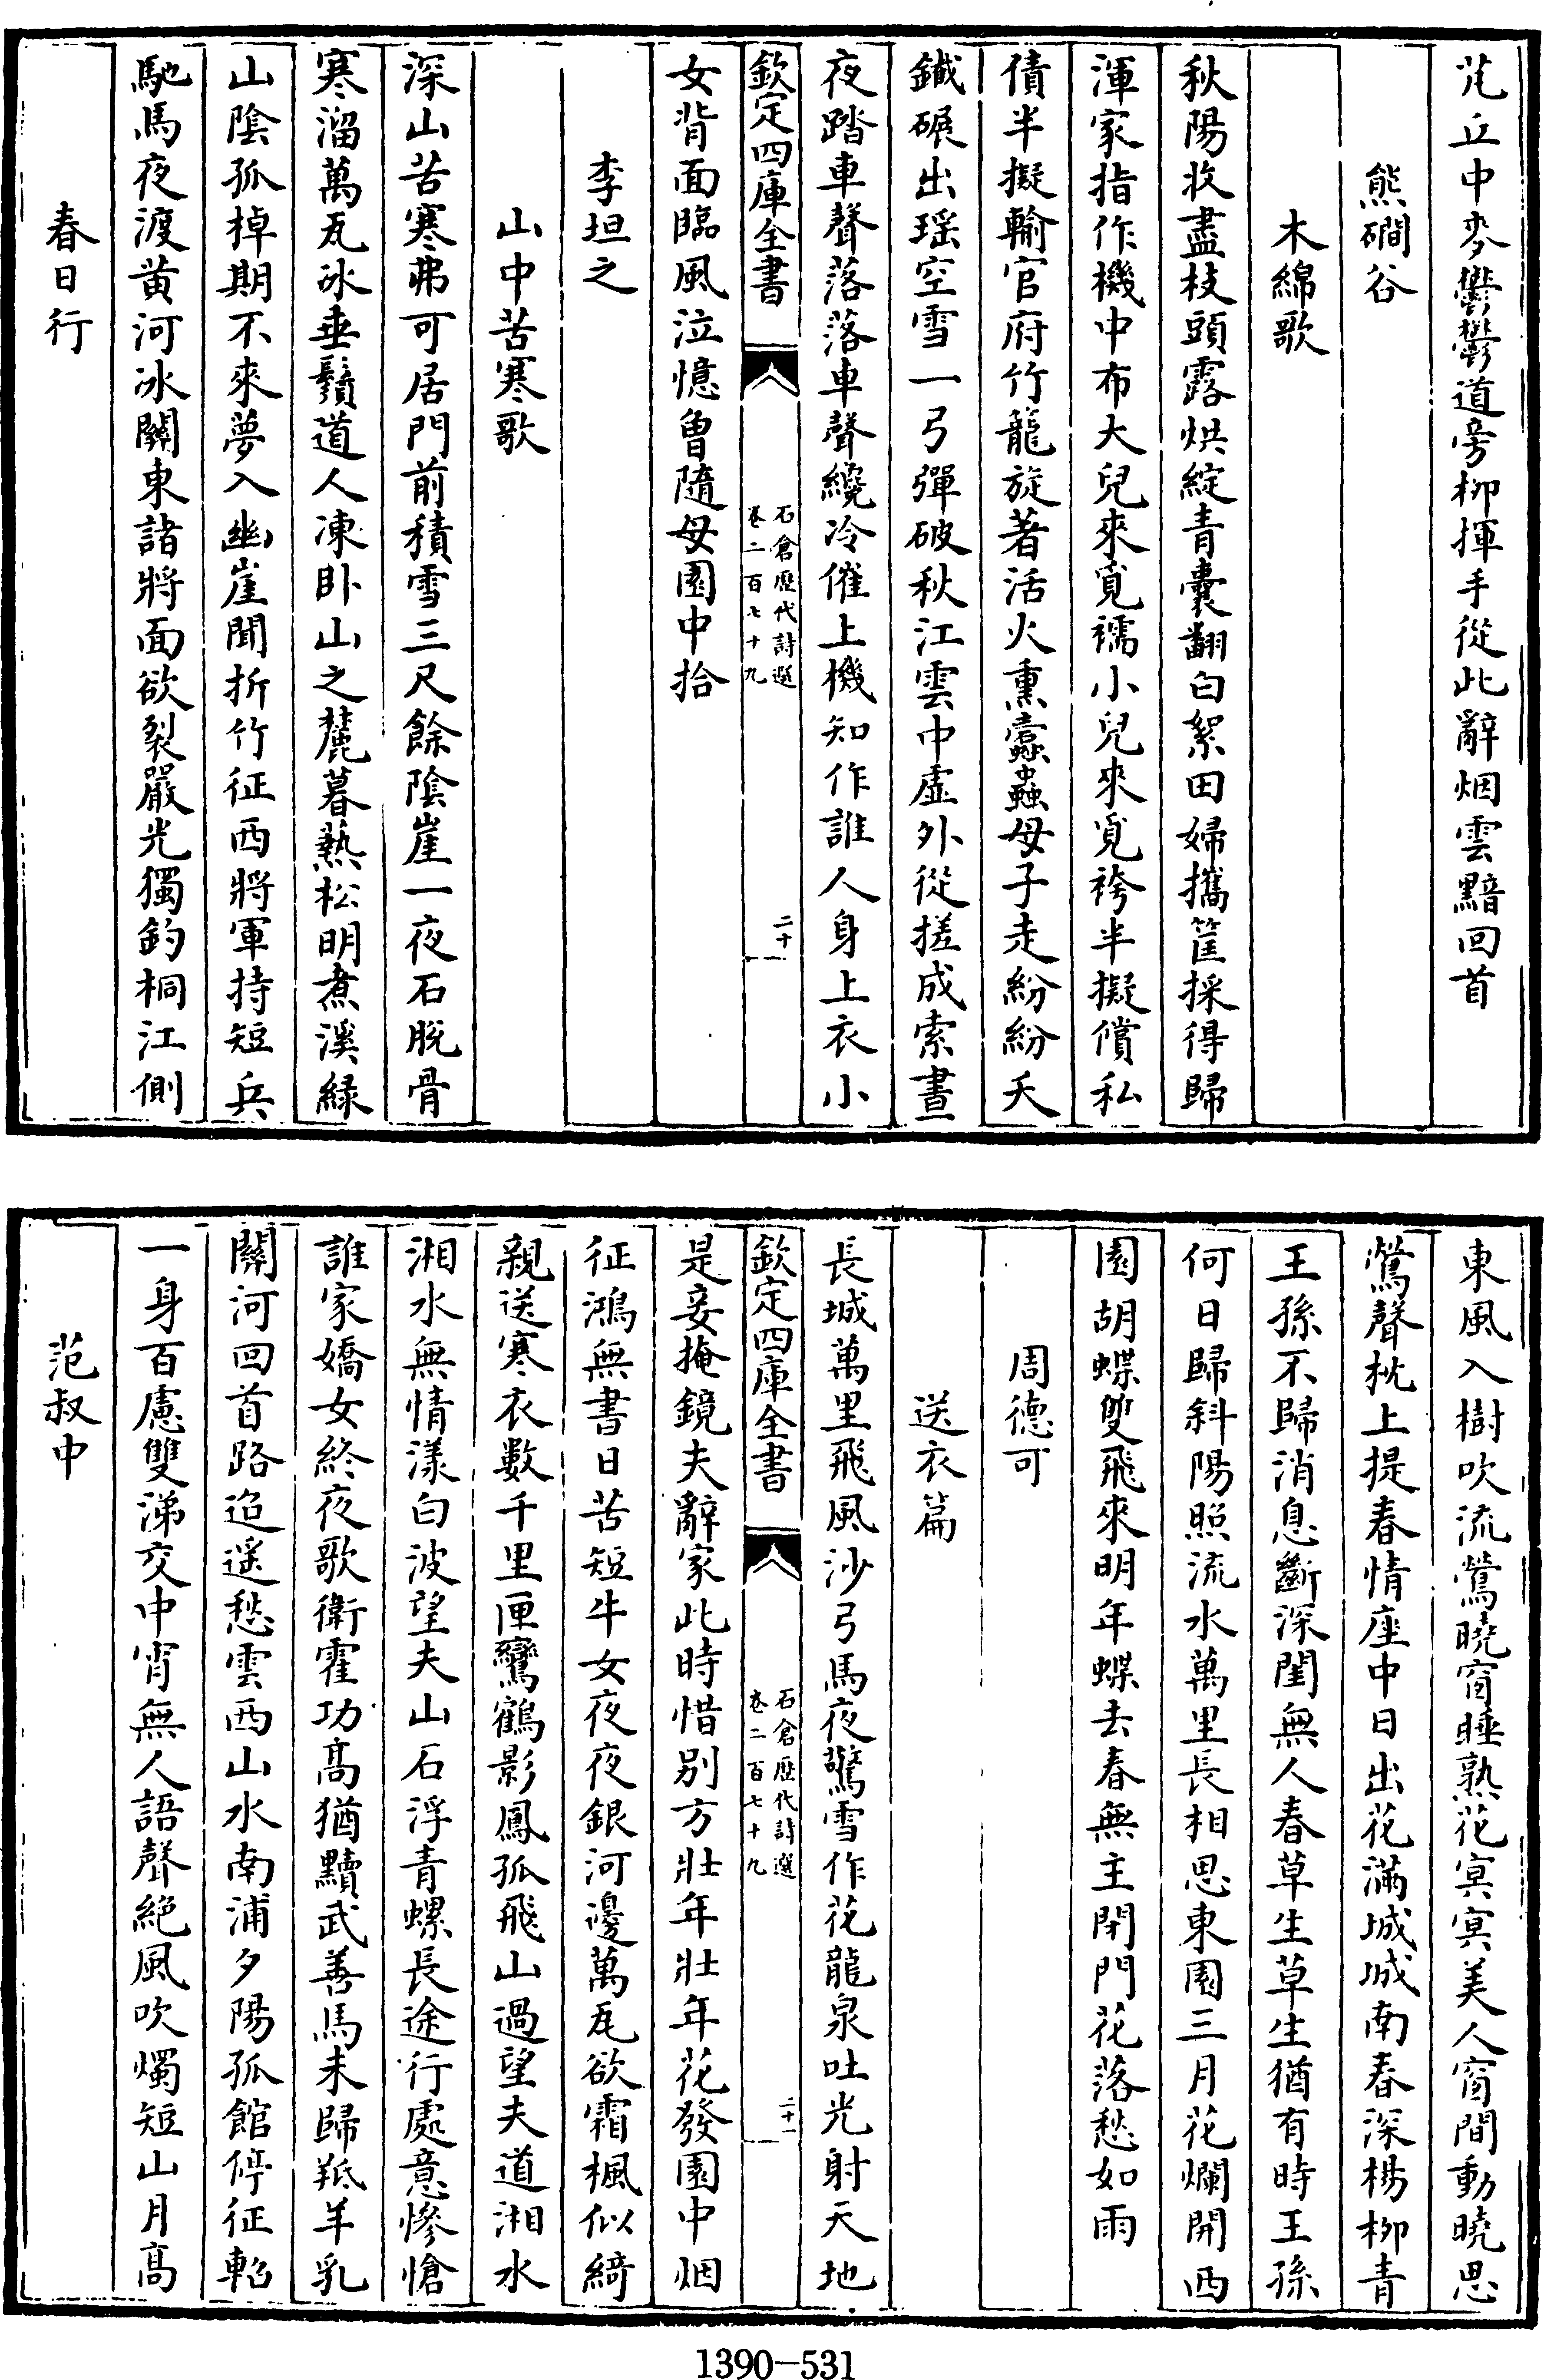 芃丘中麥鬱鬱道旁柳揮手從此辭烟雲黯回首
熊磵谷
木綿歌
秋陽收盡枝頭露烘綻青囊翻白絮田婦攜筐採得歸
渾家指作機中布大兒來覓襦小兒來覓袴半擬償私
債半擬輸官府竹籠旋著活火熏蠧蟲母子走紛紛夭
鐵碾出瑶空雪一弓彈破秋江雲中虛外從搓成索晝
夜踏車聲落落車聲纔冷催上機知作誰人身上衣小
欽定四庫全書
石倉歷代詩選
卷二百七十九
二十
女背面臨風泣憶曾隨母園中拾
李坦之
山中苦寒歌
深山苦寒弗可居門前積雪三尺餘陰崖一夜石脫骨
寒溜萬瓦冰垂鬚道人凍卧山之麓暮爇松明煮溪綠
山陰孤棹期不來夢入幽崖聞折竹征西將軍持短兵
馳馬夜渡黃河冰關東諸將面欲裂嚴光獨釣桐江側
春日行
東風入樹吹流鶯曉窗睡熟花冥冥美人窗間動曉思
鶯聲枕上提春情座中日出花滿城城南春深楊柳青
王孫不歸消息斷深閨無人春草生草生猶有時王孫
何日歸斜陽照流水萬里長相思東園三月花爛開西
園胡蝶雙飛來明年蝶去春無主閉門花落愁如雨
周德可
送衣篇
長城萬里飛風沙弓馬夜驚雪作花龍泉吐光射天地
欽定四庫全書
石倉歷代詩選
卷二百七十九
二十一
是妾掩鏡夫辭家此時惜别方壯年壯年花發園中烟
征鴻無書日苦短牛女夜夜銀河邊萬瓦欲霜楓似綺
親送寒衣數千里匣鸞鶴影鳳孤飛山過望夫道湘水
湘水無情漾白波望夫山石浮青螺長途行處意慘愴
誰家嬌女終夜歌衛霍功髙猶黷武善馬未歸羝羊乳
關河回首路迢遥愁雲西山水南浦夕陽孤館停征軺
一身百慮雙涕交中宵無人語聲絶風吹燭短山月髙
范叔中
1390-531